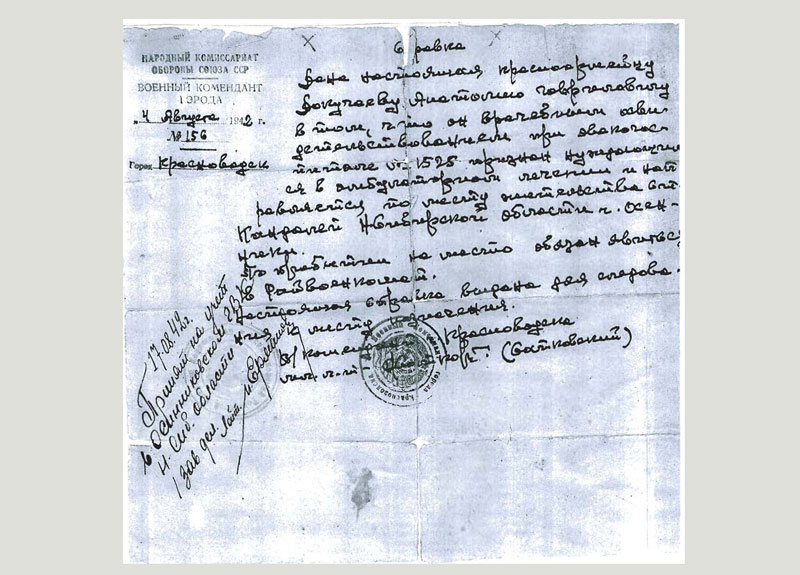 НАРОДНЫЙ КОМИССАРИАТ
ОБОРОНЫ СОЮЗА ССР
ВОЕННЫЙ КОМЕНДАНТ
ГОРОДА
"4 Августа 1942 г.
№ 156
Город Красноводск
Справка
Дана настоящая красноармейцу
Бокучаеву Анатолию Гавриловичу
в том, что он врачебным осви-
детельствованием при эвакогос-
питале № 1525 признан нуждающим
ся в амбулаторном лечении и нап
равляется по месту жительства ст.
Кандалеп Новосибирской области г. Осин-
ники.
По прибытии на место обязан явиться
в Райвоенкомат.
Настоящая справка выдана для следова-
ния к месту назначения.
В/комендант г. Красноводска
(Сатковский)
17.08.42г.
Принят на учет
в Осинниковском ГВК
Н. Сиб. области
/зав. дел.